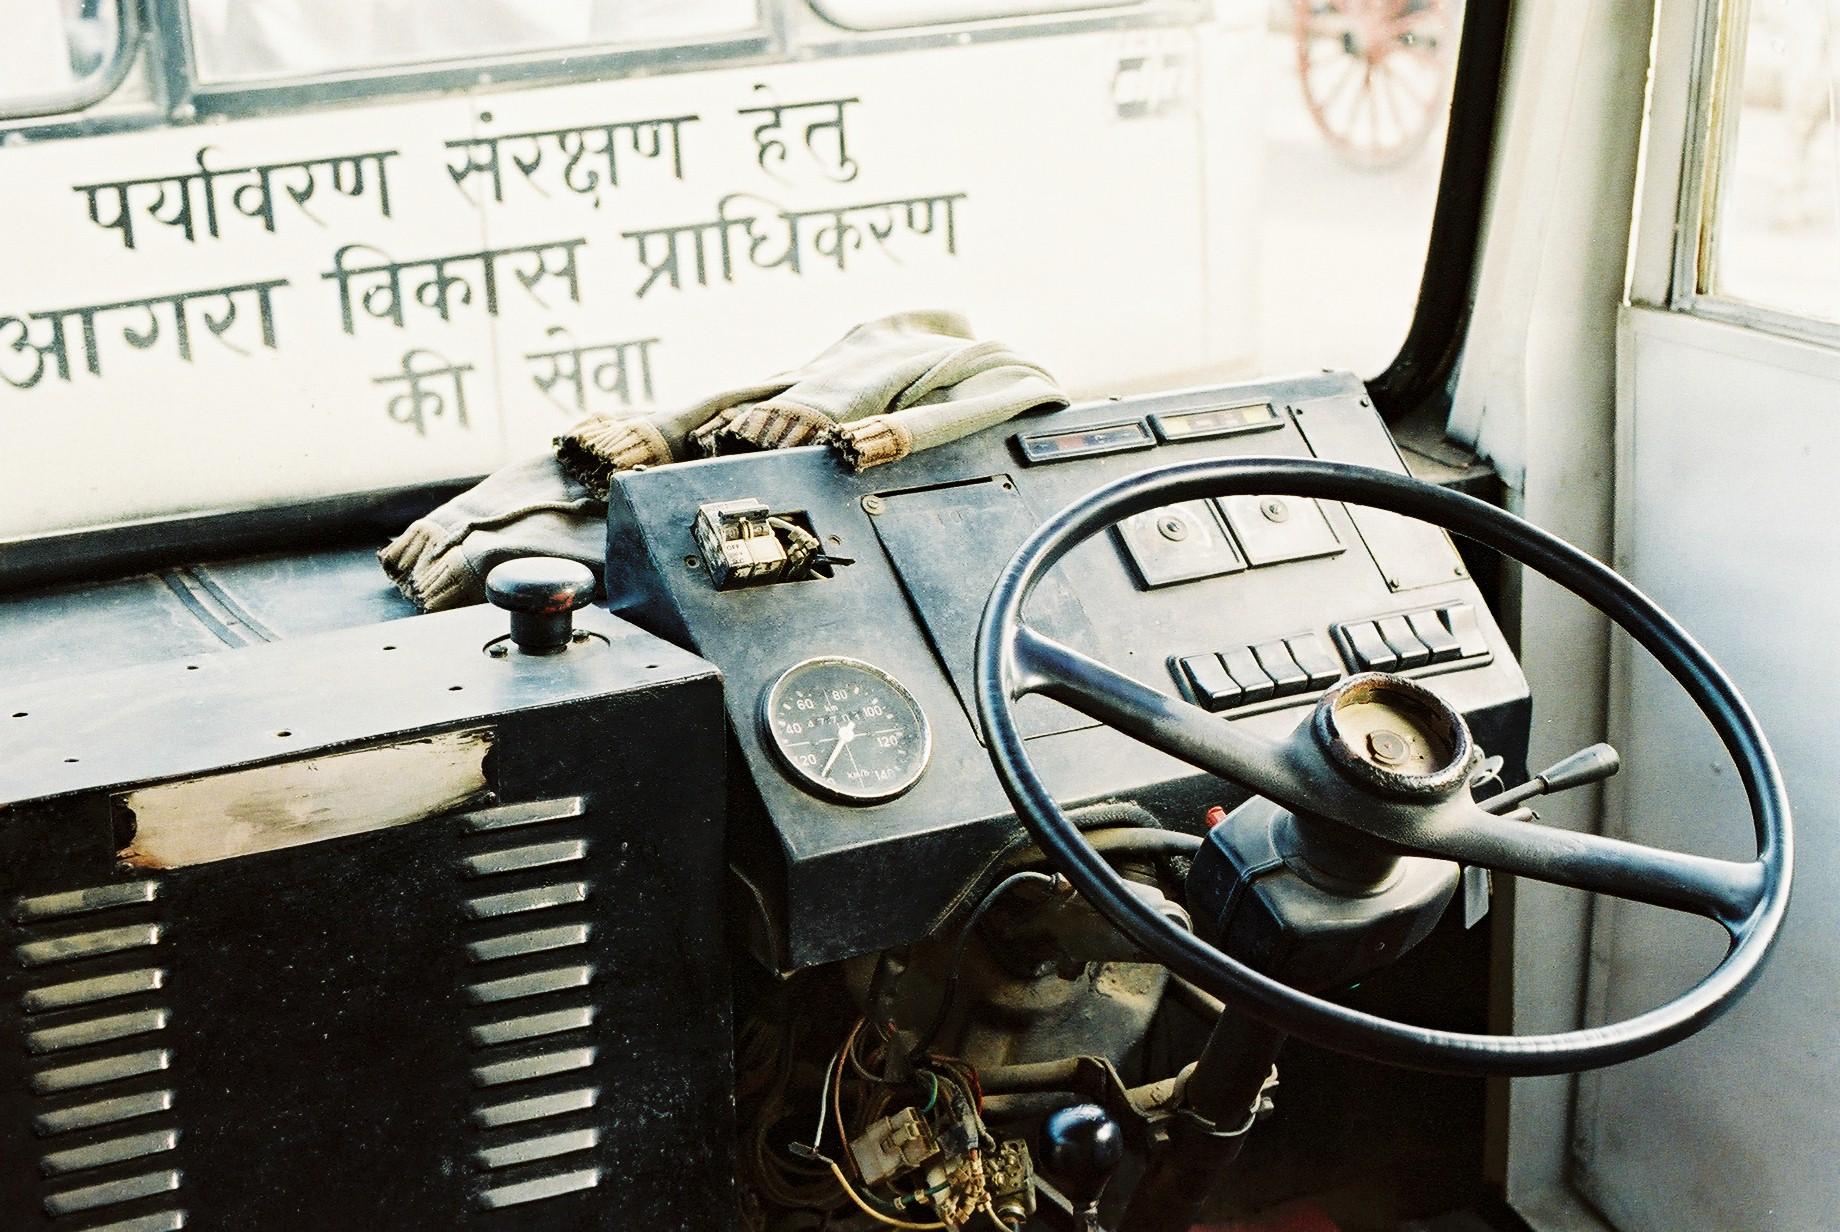 पर्यावरण संरक्षण हेतु
आगरा विकास प्राधिकरण
की सेवा
OFF
80
60
km
100
40
120
20
km/h
140